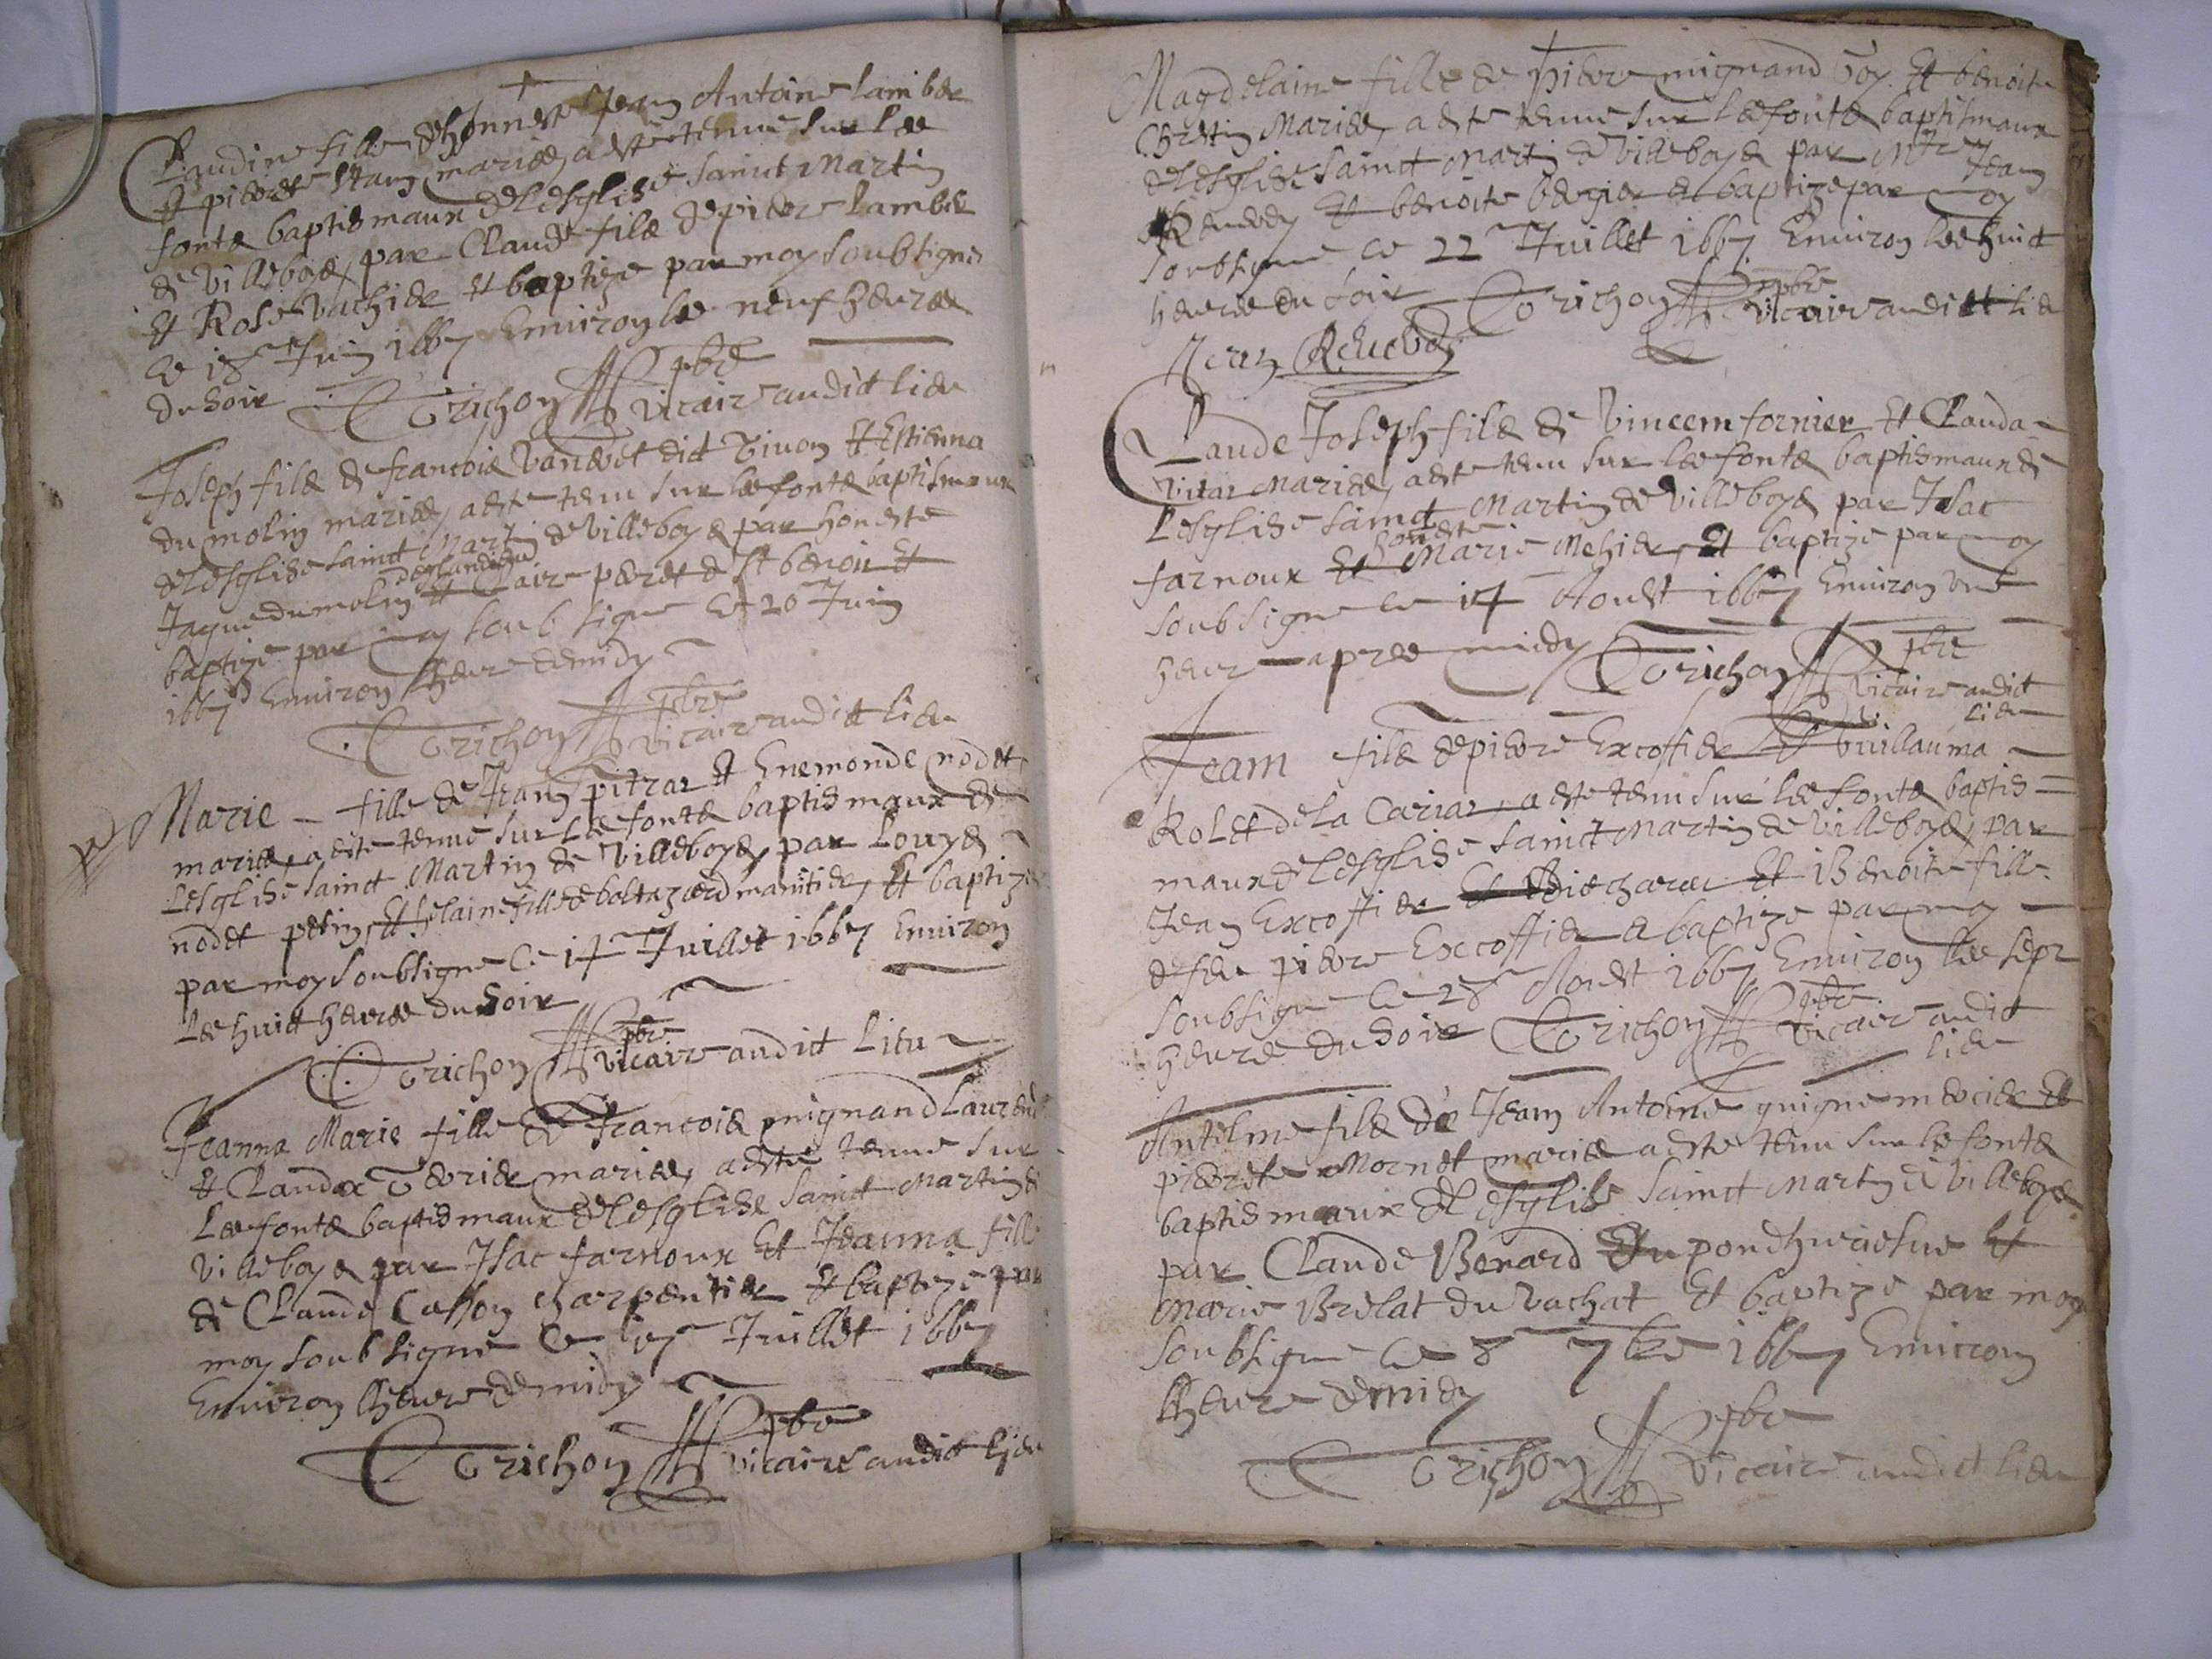 Claudine fille de honneste Jean Antoine Lamber
et pierrete Stam mariés, a este tenue sur les
fonts baptismaux de Lesglise sainct Martin
de Villeboys, par Claude fils de pierre Lamber
Et Rose Vachier et baptize par moy soubsigne
ce 18 Juin 1667 Environ les neuf heures
du soir Trichon pbre
vicaire audict lieu
Joseph fils de francois dict Et Estienna
du molin mariés, a este tenu sur les fonts baptismaux
de Lesglise sainct Martin de Villeboys par honeste
Jaque du molin Et Claire peret de st benoit Et
baptize par moy soubsigne ce 20 Juin
1667 Environ lheure de midy
Trichon pbre
vicaire audict lieu
Marie fille de Jean pitrar Et Enemonde nodet
mariés, a este tenue sur les fonts baptismaux de
Lesglise sainct Martin de Villeboys par Louys
nodet petin, Et helaine fille de baltazard Et baptize
par moy soubsigne ce 14 Juillet 1667 Environ
Les huict heures du soir
Trichon pbre
vicaire audict Lieu
Jeanna Marie fille de francois mignand Laurend
Et Clauda mariés, a este tenue sur
Les fonts baptismaux de Lesglise sainct Martin de
Villeboys par Isac farnoux Et Jeanna fille
de Claude Casson charpentier Et baptize par
moy soubsigne ce 17 Juillet 1667
Environ lheure de midy
Trichon pbre
vicaire audict lieu
Magdelaine fille de pierre mignand Et benoite
Chrestin Mariés, a este tenue sur les fonts baptismaux
de Lesglise sainct Martin de Villeboys par Mtre Jean
Reverdy Et benoite bergier et baptize par moy
soubsigne ce 22 Juillet 1667 Environ les huict
heures du soir Trichon pbre
vicaire audict lieu
Jean Reverdy
Claude Joseph fils de Vincem fornier Et Clauda
vitar Mariés, a este tenu sur les fonts baptismaux de
Lesglise sainct Martin de Villeboys par Isac
farnoux Et honeste Marie Mehier, Et baptize par moy
soubsigne ce 14 Aoust 1667 Environ une
heure apres midy Trichon pbre
vicaire audict
lieu
Jeam fils de pierre Excoffier Et Guillauma
Rolet de la Cariar, a este tenu sur les fonts baptis=
maux de Lesglise sainct Martin de Villeboys, par
Jean Excoffier Et Benoite fille
de feu pierre Excoffier et baptize par moy
soubsigne ce 28 Aoust 1667 Environ les sept
heures du soir Trichon pbre
vicaire audict
lieu
Antelme fils de Jeam Antoine guigne mercier Et
pierrete Mornet mariés a este tenu sur les fonts
baptismaux de Lesglise sainct Martin de Villeboys
par Claude Benard Et
Marie Brelat du Vachat Et baptize par moy
soubsigne ce 8 7bre 1667 Environ
lheure de midy
Trichon pbre
vicaire audict lieu